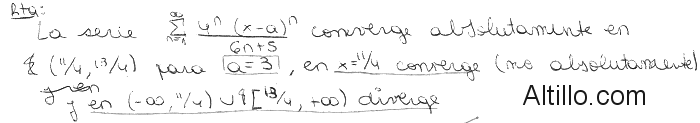 Rta:
La serie ∞ Σ n=1 4ⁿ (x-a)ⁿ / 6n+5 converge absolutamente en
(11/4, 13/4) para a=3, en x=11/4 converge (no absolutamente)
y en (-∞, 11/4) ∪ [13/4, +∞) diverge
Altillo.com